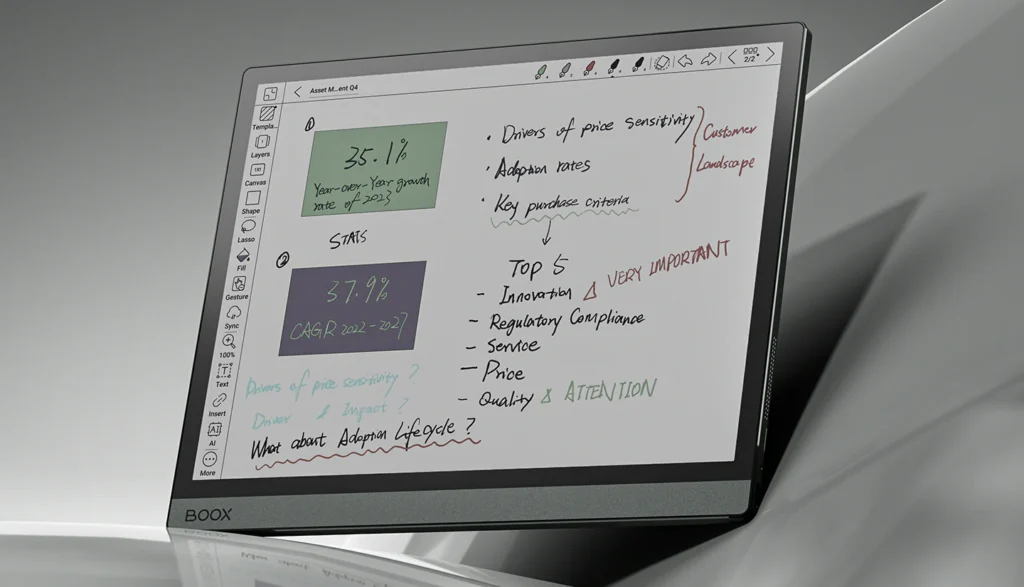 Asset M...ent Q4
2/2
Templa...
Layers
Canvas
Shape
Lasso
Fill
Gesture
Sync
100%
Text
Insert
AI
More
1
35.1%
Year-over-Year growth
rate of 2023
STATS
2
37.9%
CAGR 2022-2027
Drivers of price sensitivity ?
Driver & Impact ?
What about Adoption Lifecycle ?
· Drivers of price sensitivity
· Adoption rates
· Key purchase criteria
Customer
Landscape
TOP 5
- Innovation △ VERY IMPORTANT
- Regulatory Compliance
- Service
- Price
- Quality △ ATTENTION
BOOX